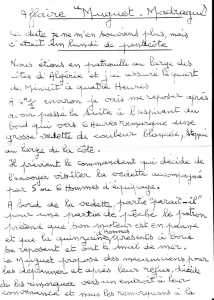 Affaire "Muguet - Madrague"
La date je ne m'en souviens plus, mais
c'était un lundi de pentecôte
Nous étions en patrouille au large des
côtes d'Algérie et j'ai assuré le quart
de Minuit à quatre Heures
A environ je vais me reposer après
avoir passé la suite à l'aspirant du
bord qui vers 6 Heures remarque une
grosse vedette de couleur blanche, stoppée
au large de la côte.
Il prévient le commandant qui décide de
l'envoyer visiter la vedette accompagné
par 5 ou 6 Hommes d'équipage.
A bord de la vedette partie "parait-il"
pour une partie de pêche le patron
prétend que son moteur est en panne
et que la quinzaine d'hommes présents à bord
se reposent et ont le mal de mer.
Le Muguet propose des mécaniciens pour
les dépanner et après leur refus, décide
de les remorquer vers un endroit à leur
convenance et nous les remorquons à la